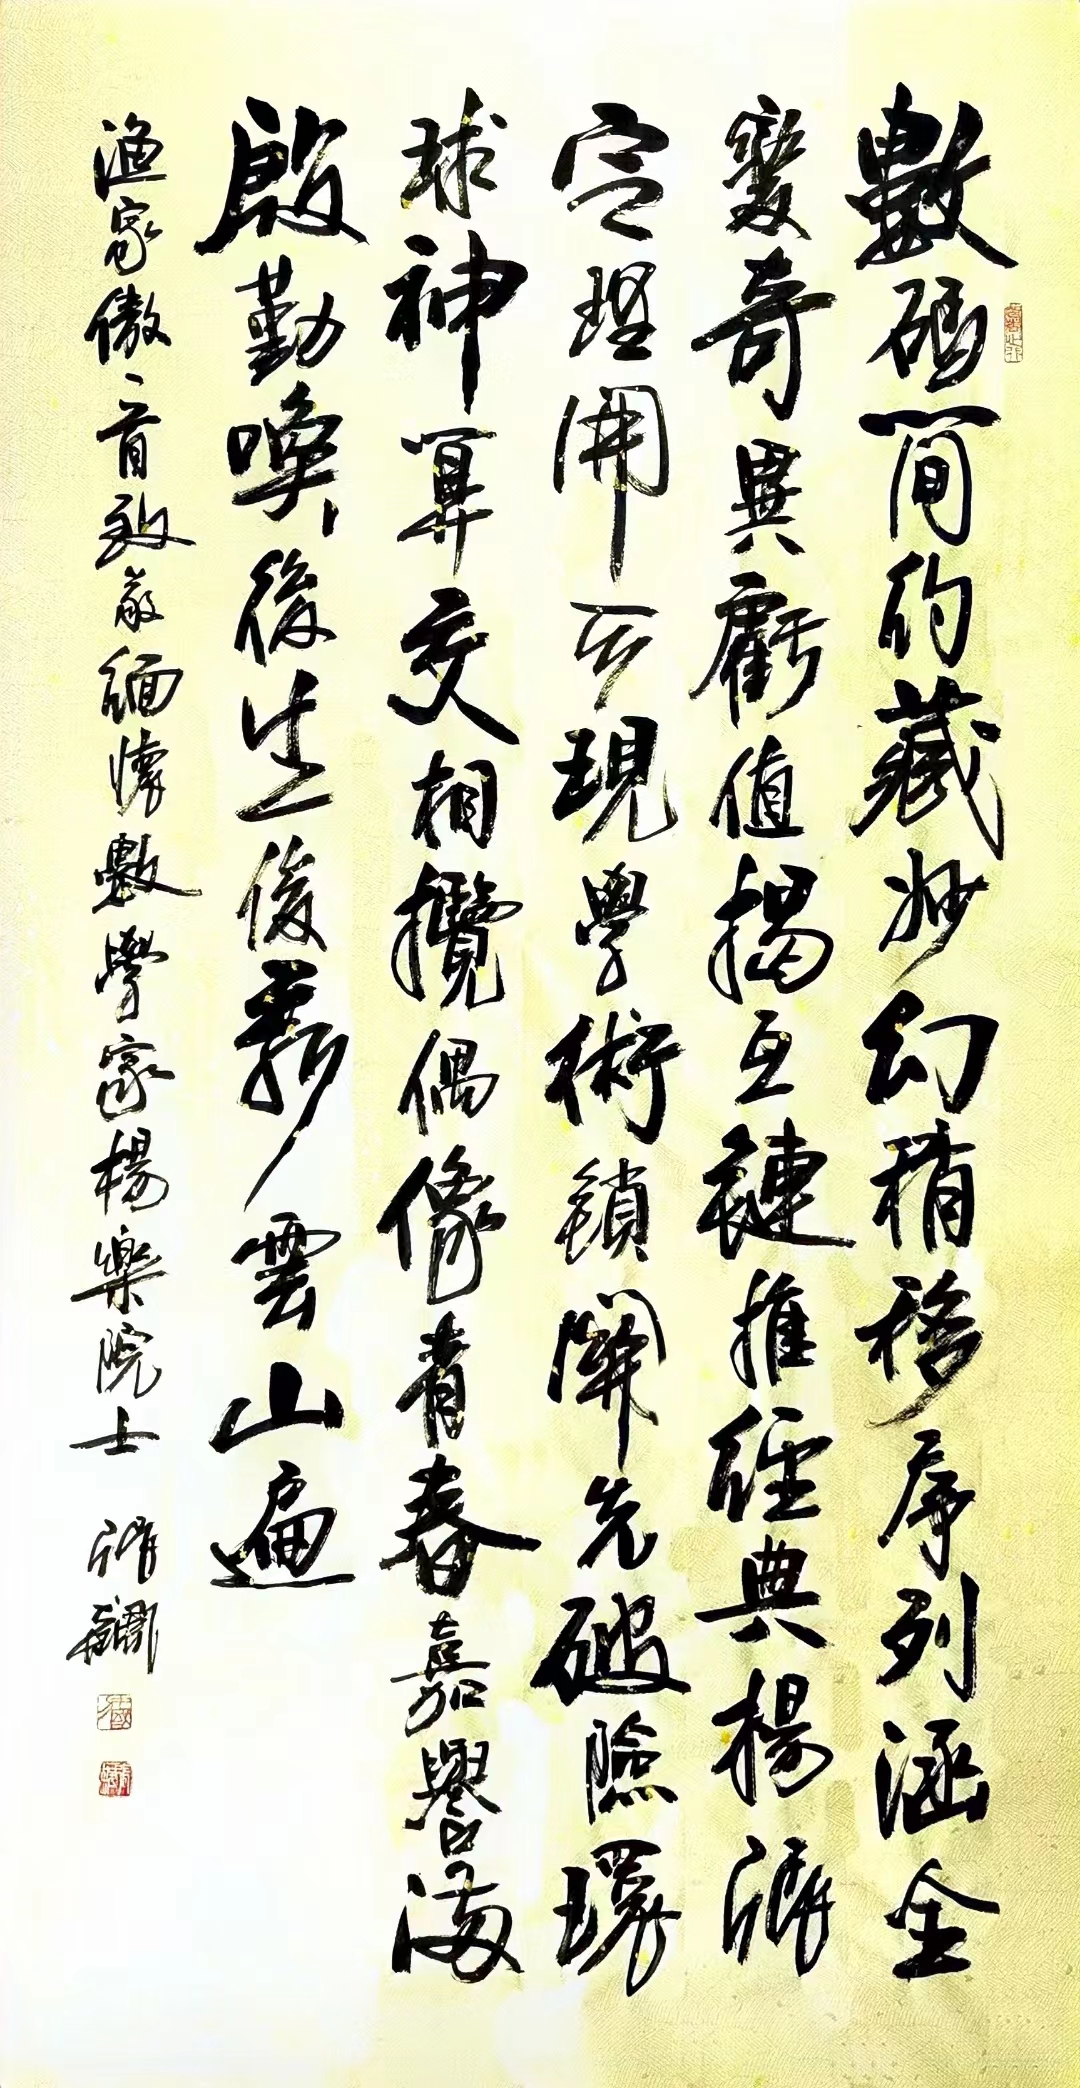 數碼簡約藏妙幻稍移序列涵全
變奇異虧值揭互鏈推經典楊張
定理開現學術鎖關先破險環
球神算交相攬偶像青春嘉譽滿
殷勤喚後生俊雲山遍
漁家傲一首致敬緬懷數學家楊樂院士